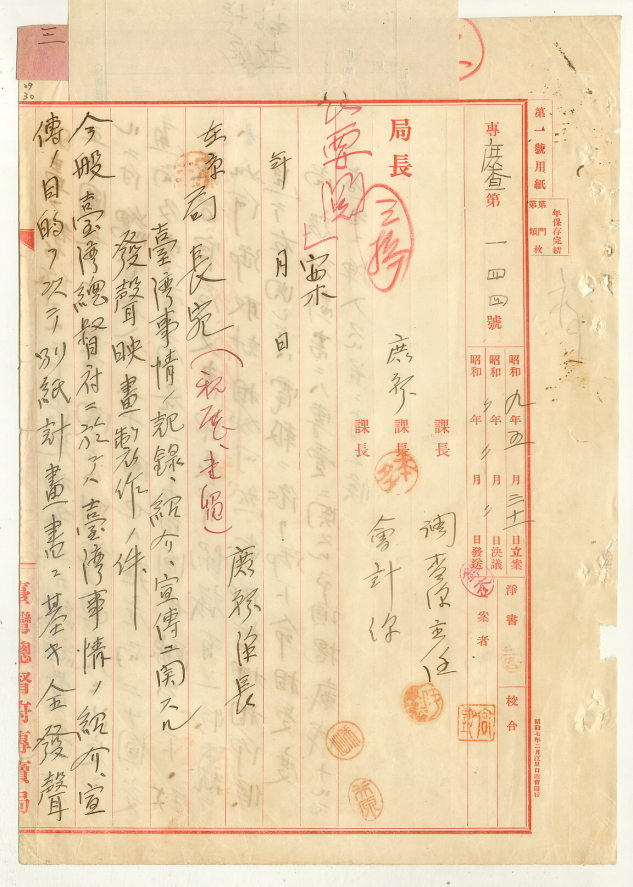 第一號用紙
年保存完結
第 門
第 類 枚
專庶查第一四四號
昭和九年五月三十一日立案
昭和〃年〃月〃日決議
昭和 年 月 日發送
淨書
校合
案者
昭和七年二月
局長
庶務課長
課長
課長
調查係主任
會計係
案
年 月 日
庶務課長
各局長宛
臺灣事情ノ記錄、紹介、宣傳ニ関スル
發聲映畫製作ノ件
今般臺灣總督府ニ於テハ臺灣事情ノ紹介、宣
傳ノ目的ヲ以テ別紙計畫書ニ基キ全發聲
臺灣總督府專賣局
三
29
30